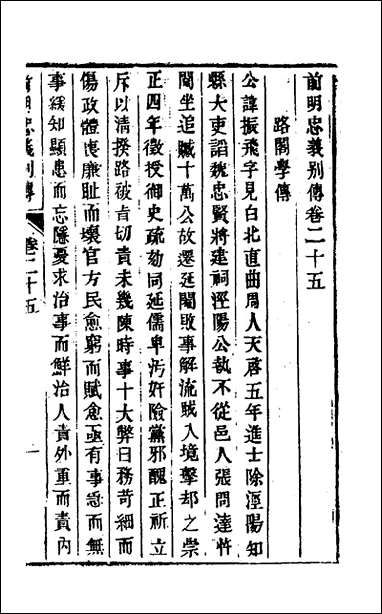 前明忠義別傳卷二十五
路閣學傳
公諱振飛字見白北直曲周人天啓五年進士除涇陽知
縣大吏謟魏忠賢將建祠涇陽公執不從邑人張問達忤
閹坐追贓十萬公故遷延閹敗事解流賊入境擊却之崇
正四年徵授御史疏劾周延儒卑汚奸險黨邪醜正祈立
斥以清揆路被旨切責未幾陳時事十大弊曰務苛細而
傷政體喪廉耻而壞官方民愈窮而賦愈亟有事急而無
事緩知顯患而忘隱憂求治事而鮮治人責外重而責內
前明忠義別傳 卷二十五 一